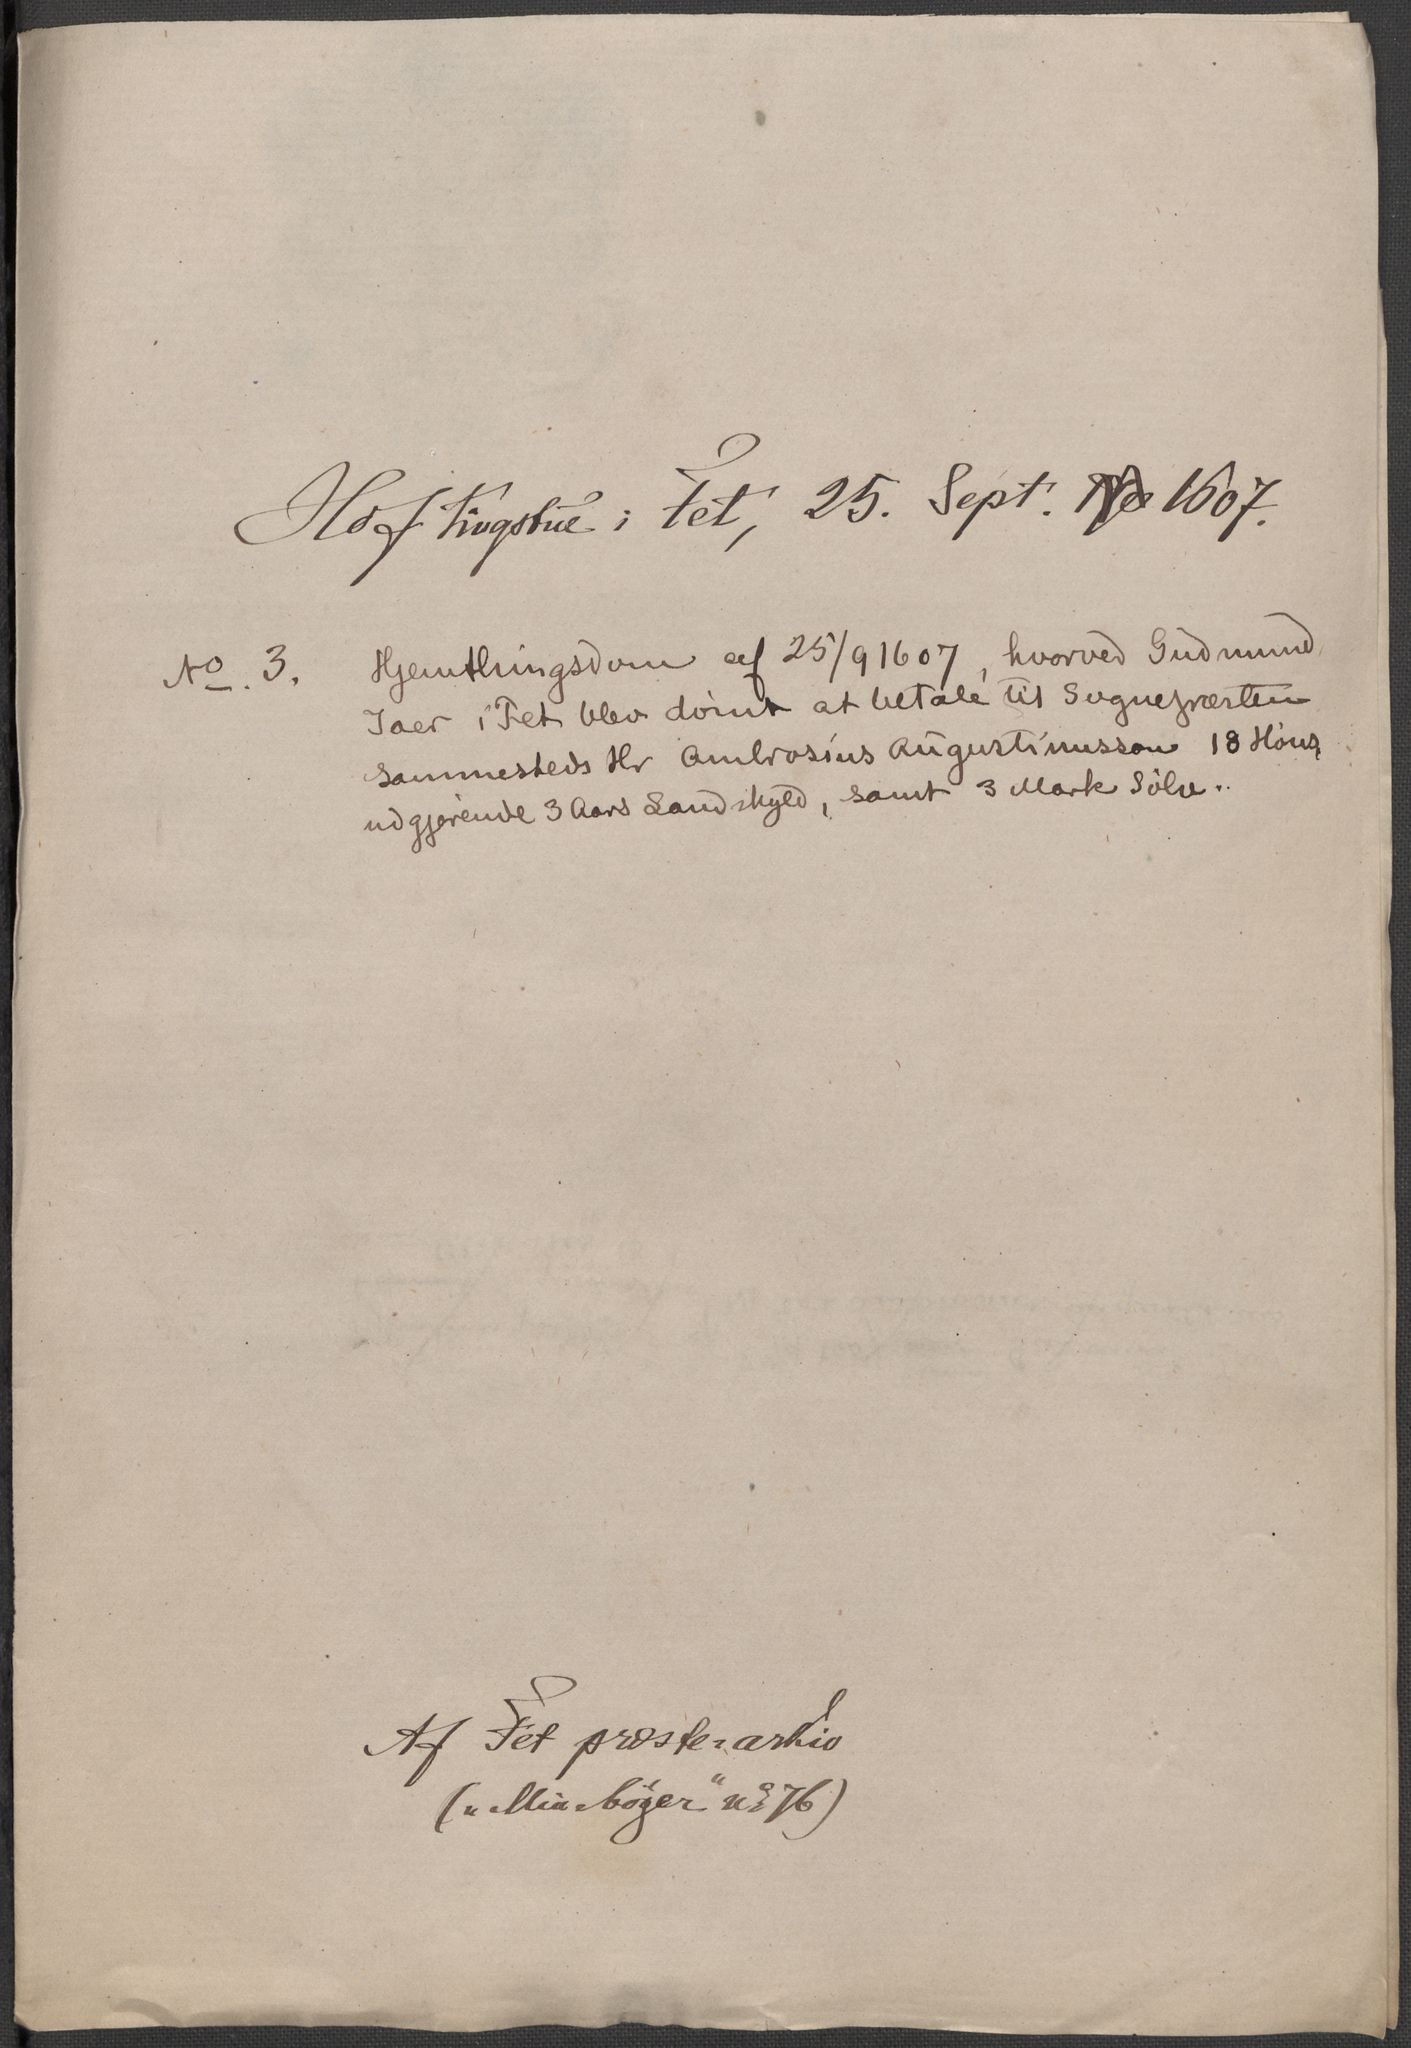 Hof tingstue i Fet, 25. Sept. 1607.
No. 3. Hjemthingsdom af 25/9 1607, hvorved Gudmund
Jaer i Fet blev dömt at betale til Sognepræsten
sammesteds Hr Ambrosius Augustinussøn 18 Höns,
udgjørende 3 Aars Landskyld, samt 3 Mark Sölv.
Af Fet præste-arkiv
("Min-böger" no 76)